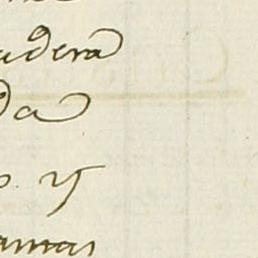 adera
da
o. y
amas